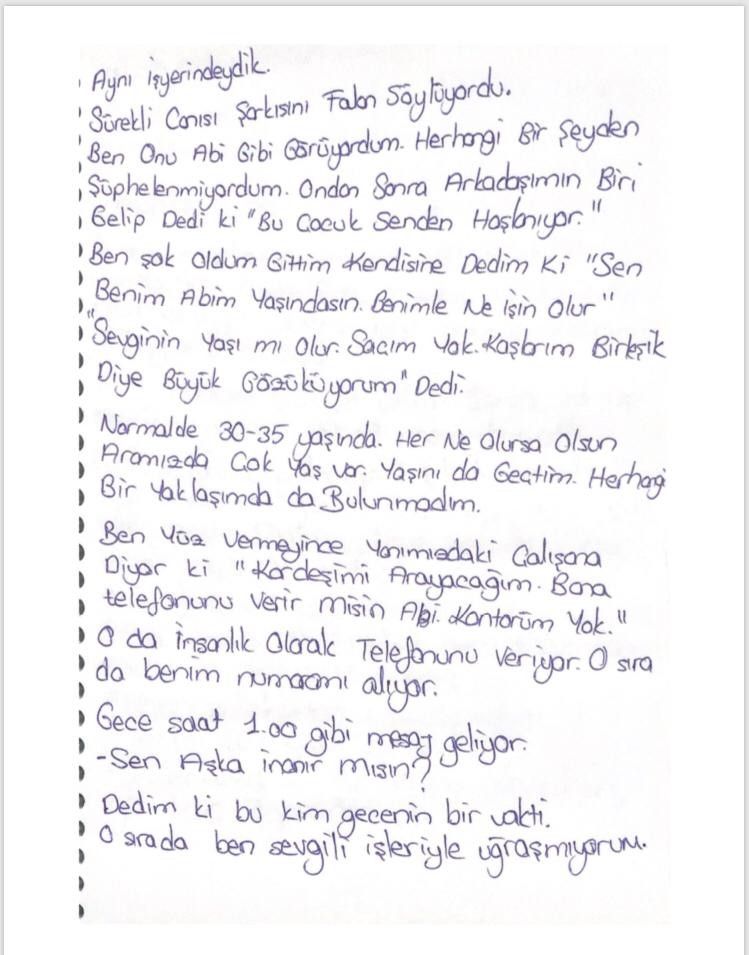 Aynı işyerindeydik.
Sürekli Canısı Şarkısını Falan Söylüyordu.
Ben Onu Abi Gibi Görüyordum. Herhangi Bir Şeyden
Şüphelenmiyordum. Ondan Sonra Arkadaşımın Biri
Gelip Dedi ki "Bu Çocuk Senden Hoşlanıyor."
Ben Şok Oldum Gittim Kendisine Dedim Ki "Sen
Benim Abim Yaşındasın. Benimle Ne İşin Olur"
"Sevginin Yaşı mı Olur. Saçım Yok. Kaşlarım Birleşik
Diye Büyük Gözüküyorum" Dedi.
Normalde 30-35 yaşında. Her Ne Olursa Olsun
Aramızda Çok Yaş Var. Yaşını da Geçtim. Herhagi
Bir Yaklaşımda da Bulunmadım.
Ben Yüz Vermeyince Yanımızdaki Çalışana
Diyor ki "Kardeşimi Arayacağım. Bana
telefonunu Verir misin Abi. Kontorüm Yok."
O da İnsanlık Olarak Telefonunu Veriyor. O sıra
da benim numaramı alıyor.
Gece saat 1.00 gibi mesaj geliyor.
-Sen Aşka inanır mısın?
Dedim ki bu kim gecenin bir vakti.
O sırada ben sevgili işleriyle uğraşmıyorum.